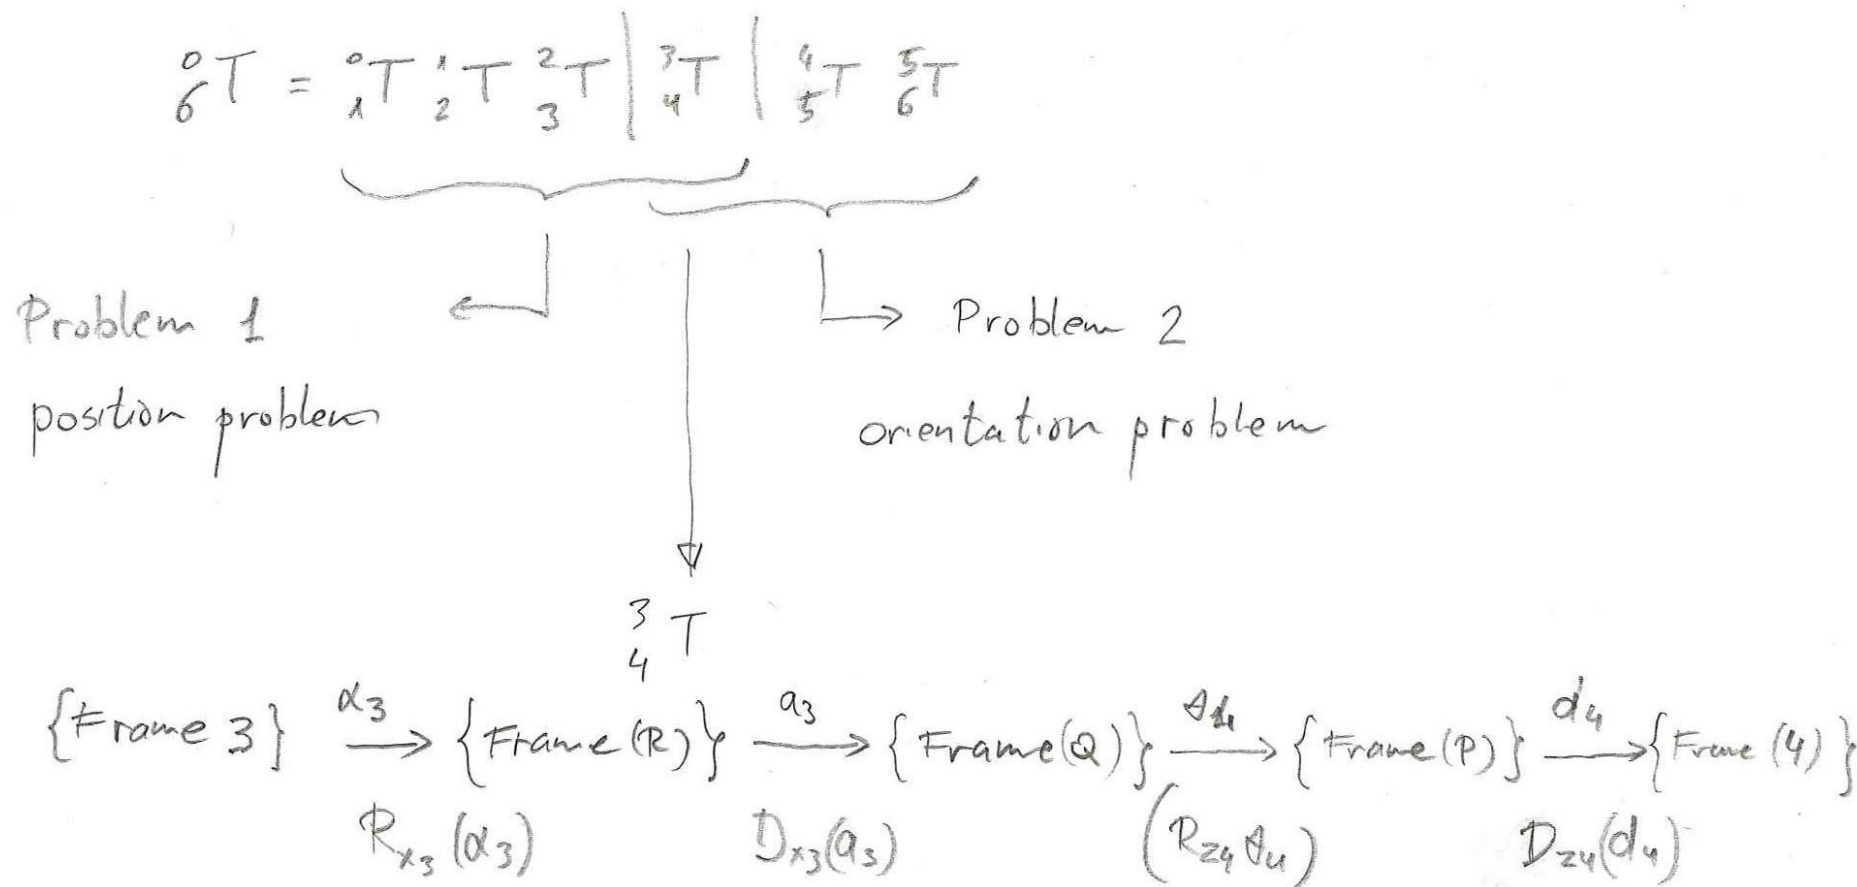 ⁰₆T = ⁰₁T ¹₂T ²₃T | ³₄T | ⁴₅T ⁵₆T
Problem 1
Problem 2
position problem
orientation problem
³₄T
{Frame 3} α₃ → {Frame (R)} a₃ → {Frame (Q)} θ₄ → {Frame (P)} d₄ → {Frame (4)}
Rₓ₃(α₃) Dₓ₃(a₃) (R_z₄ θ₄) D_z₄(d₄)